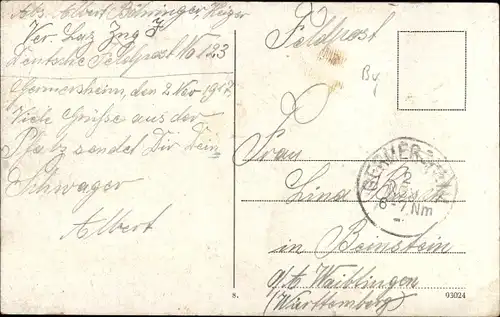 Abs. Albert Böhringer
Ver. Laz Zug
Deutsche Feldpost No 123
Germersheim, den 2 Nov 1917.
Viele Grüsse aus der
Pfalz sendet Dir Dein
Schwager
Albert
Feldpost
By
Frau
Lina
in Beinstein
o/a Waiblingen
(Württemberg)
GERMERSHEIM
2
6-7 Nm
8.
93024